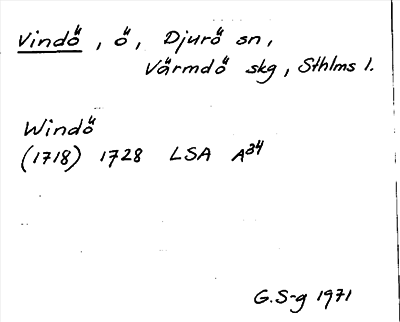 Vindö, ö, Djurö sn,
Värmdö skg, Sthlms l.
Windö
(1718) 1728 LSA A34
G.S-g 1971